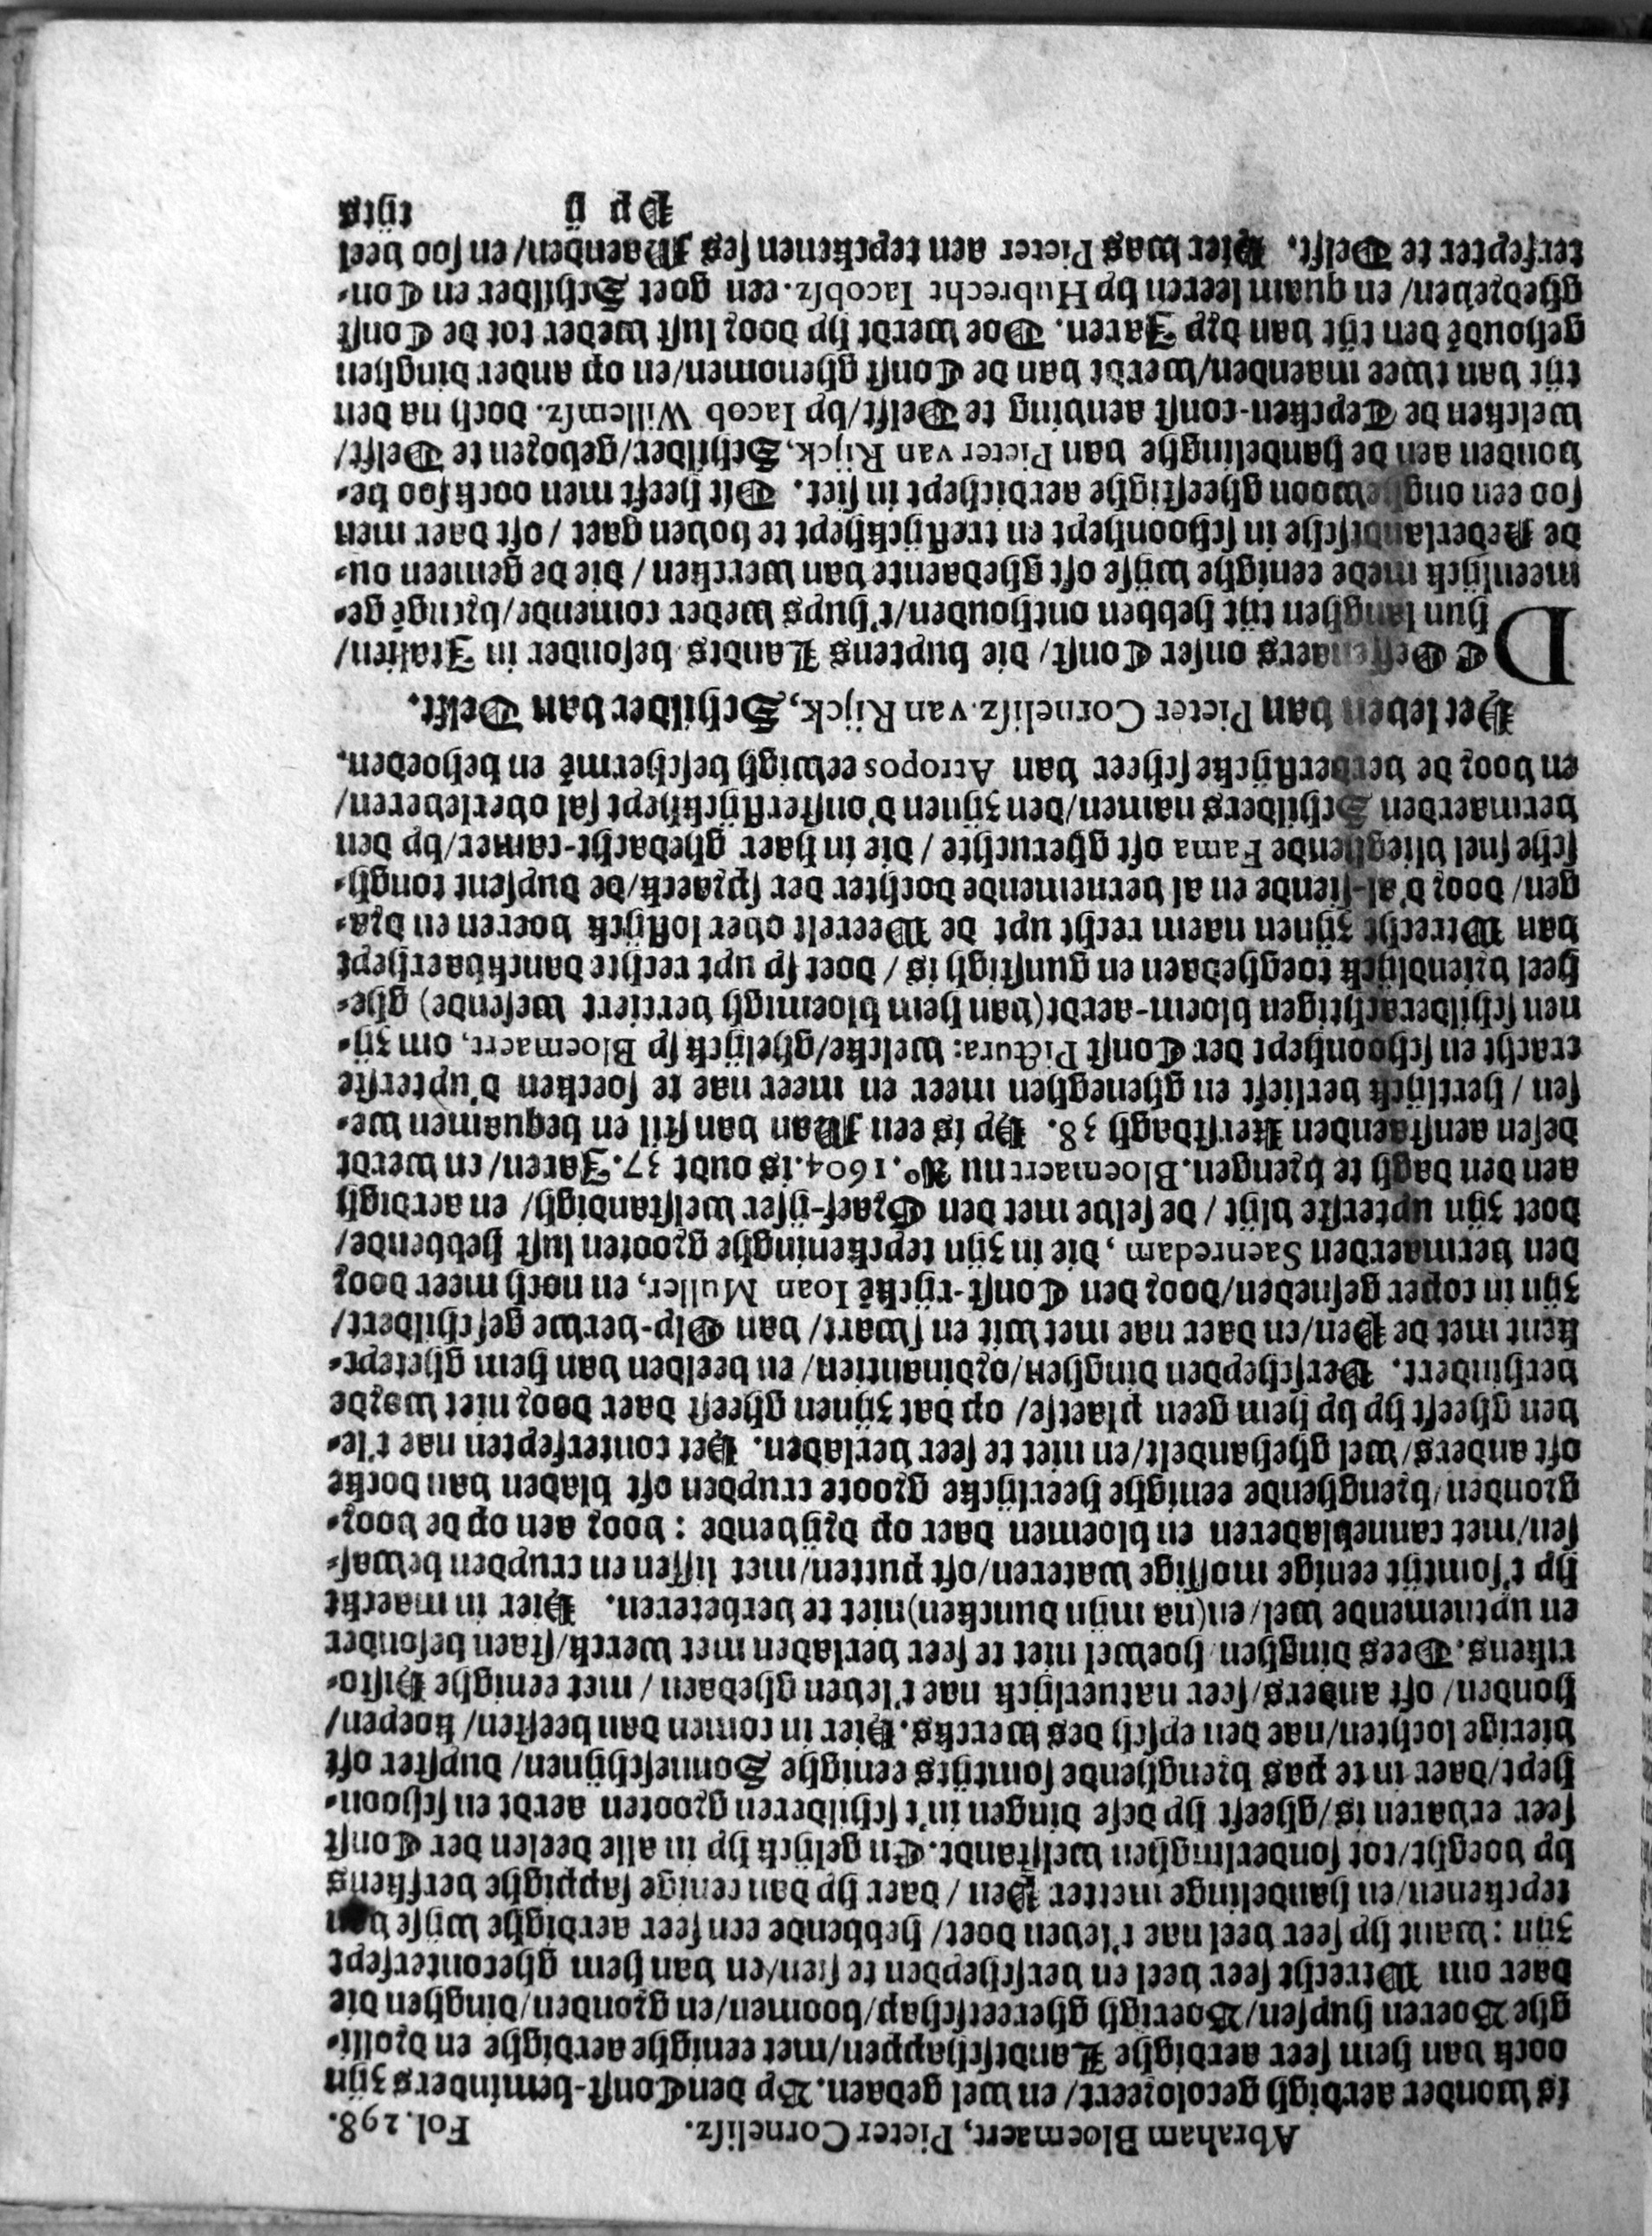 Abraham Bloemaert, Pieter Cornelisz. Fol. 298.
is wonder aerdigh gecoloreert/ en wel gedaen. By den Const-beminders zijn
oock van hem seer aerdighe Landtschappen/met eenighe aerdighe en drolli-
ghe Boeren huysen/Boerigh ghereetschap/boomen/en gronden/dinghen die
daer om Wtrecht seer veel en verscheyden te sien/en van hem gheconterfeyt
zijn: want hy seer veel nae t'leven doet/ hebbende een seer aerdighe wijse van
teyckenen/en handelinge metter Pen / daer hy dan eenige sappighe verfkens
by voeght/tot sonderlinghen welstandt. En gelijck hy in alle deelen der Const
seer ervaren is/gheeft hy dese dingen in't schilderen grooten aerdt en schoon-
heyt/daer in te pas brenghende somtijts eenighe Sonneschijnen/ duyster oft
vierige lochten/nae den eysch des wercks. Hier in comen dan beesten/ Koeyen/
Honden/ oft anders/seer natuerlijck nae t'leven ghedaen / met eenighe Histo-
rikens. Dees dinghen hoewel niet te seer verladen met werck/staen besonder
en uytnemende wel/en(na mijn duncken)niet te verbeteren. Hier in maeckt
hy t'somtijt eenige mossige wateren/oft putten/met lissen en cruyden bewas-
sen/met cannebladeren en bloemen daer op drijvende: voor aen op de voor-
gronden/brenghende eenighe heerlijcke groote cruyden oft bladen van docke
oft anders/wel ghehandelt/en niet te seer verladen. Het conterfeyten nae t'le-
ven gheeft hy by hem geen plaetse/ op dat zijnen gheest daer door niet worde
verhindert. Verscheyden dinghen/ordinantien/ en beelden van hem gheteyc-
kent met de Pen/en daer nae met wit en swart/ van Oly-verwe geschildert/
zijn in coper gesneden/door den Const-rijckē Ioan Muller, en noch meer door
den vermaerden Saenredam, die in zijn teyckeninghe grooten lust hebbende/
doet zijn uyterste vlijt / de selve met den Graef-ijser welstandigh/ en aerdigh
aen den dagh te brengen. Bloemaert nu Aº. 1604. is oudt 37. Jaren/ en werdt
desen aenstaenden Kerstdagh 38. Hy is een Man van stil en bequamen we-
sen / hertlijck verlieft en gheneghen meer en meer nae te soecken d'uyterste
cracht en schoonheyt der Const Pictura: welcke/ghelijck sy Bloemaert, om zij-
nen schilderachtigen bloem-aerdt(van hem bloemigh verciert wesende) ghe-
heel vriendlijck toeghedaen en gunstigh is / doet sy uyt rechte danckbaerheyt
van Wtrecht zijnen naem recht uyt de Weerelt over loflijck voeren en dra-
gen/ door d'al-siende en al vernemende dochter der spraeck/de duysent tongh-
sche snel vlieghende Fama oft gheruchte / die in haer ghedacht-camer/by den
vermaerden Schilders namen/den zijnen d'onsterflijckheyt sal overleveren/
en voor de verderflijcke scheer van Atropos eewigh beschermē en behoeden.
Het leven van Pieter Cornelisz. van Rijck, Schilder van Delft.
DE Oeffenaers onser Const/ die buytens Landts besonder in Italien/
hun langhen tijt hebben onthouden/t'huys weder comende/brengē ge-
meenlijck mede eenighe wijse oft ghedaente van wercken / die de gemeen ou-
de Nederlandtsche in schoonheyt en treflijckheyt te boven gaet / oft daer men
soo een onghewoon gheestighe aerdicheyt in siet. Dit heeft men oock soo be-
vonden aen de handelinghe van Pieter van Rijck, Schilder/geboren te Delft/
welcken de Teycken-const aenving te Delft/by Iacob Willemsz. doch na den
tijt van twee maenden/werdt van de Const ghenomen/en op ander dinghen
gehoudē den tijt van dry Jaren. Doe werdt hy door lust weder tot de Const
ghedreven/ en quam leeren by Hubrecht Iacobsz. een goet Schilder en Con-
terfeyter te Delft. Hier was Pieter aen teyckenen ses Maenden/ en soo veel
Pp ij tijts